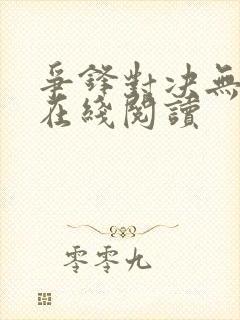 爭鋒對決無
在綫閱讀
零零九